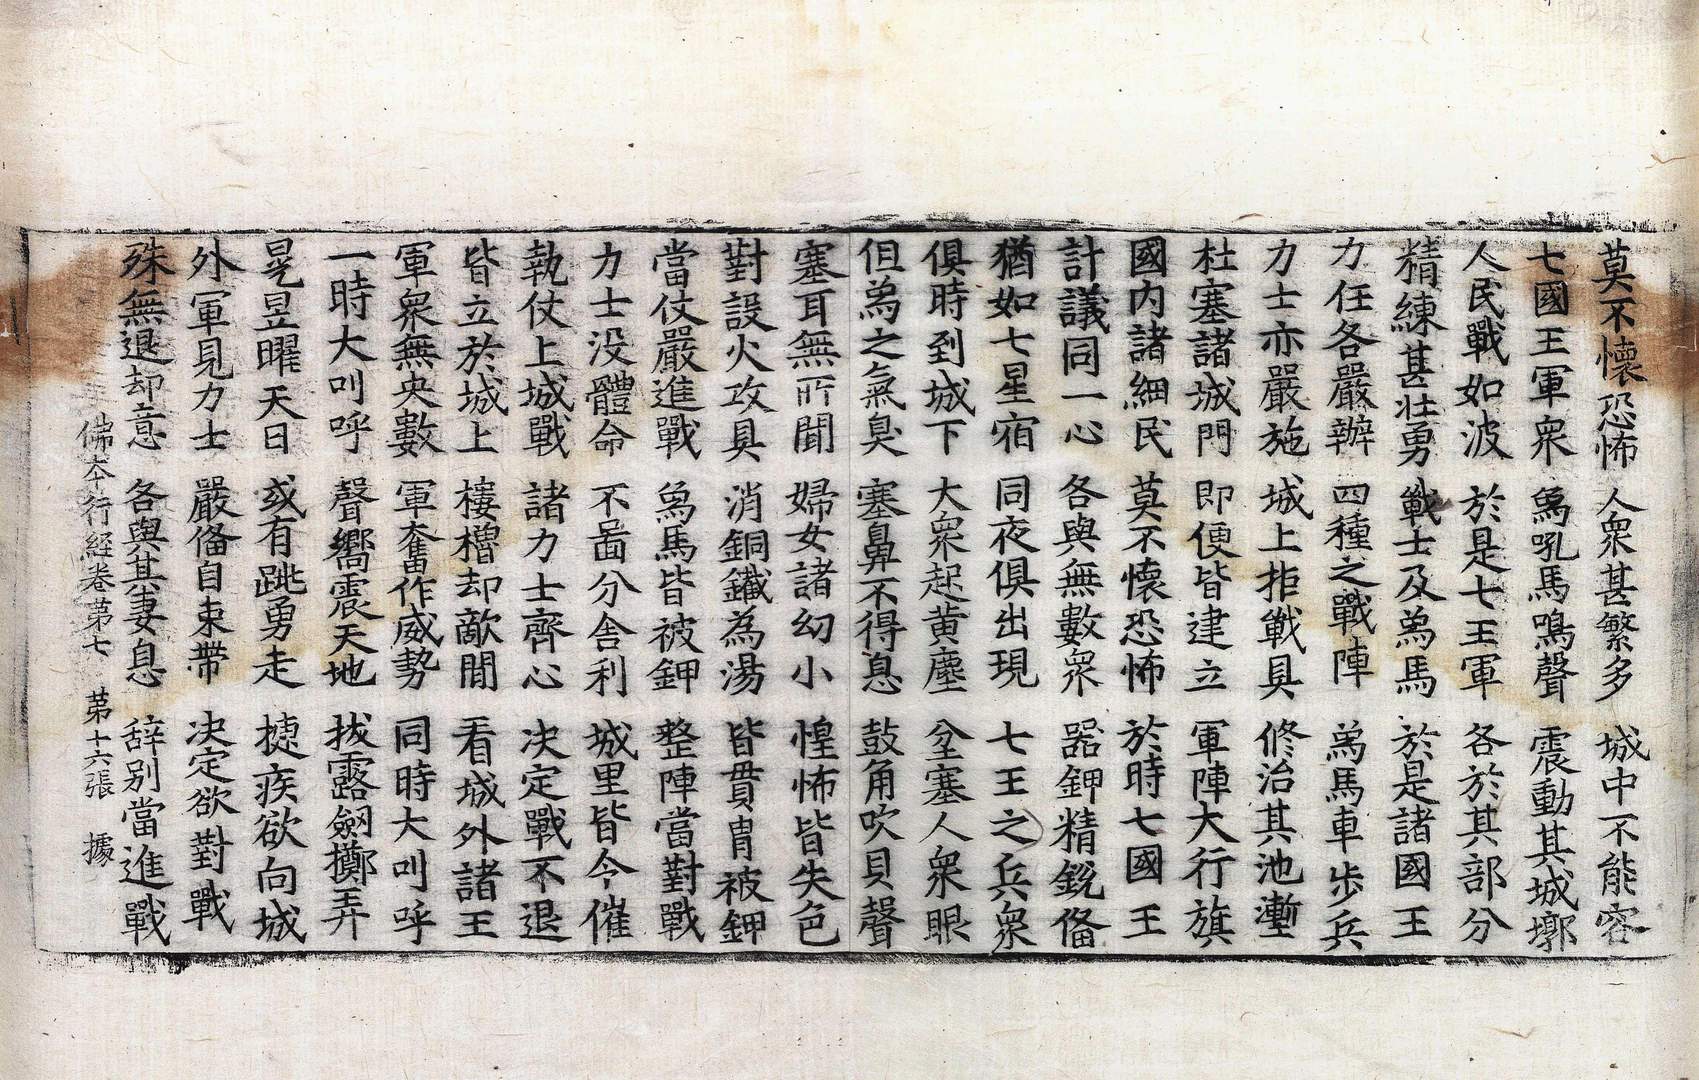 莫不懷恐怖 人衆甚繁多 城中不能容
七國王軍衆 爲吼馬鳴聲 震動其城墎
人民戰如波 於是七王軍 各於其部分
精練甚壯勇 戰士及爲馬 於是諸國王
力任各嚴辦 四種之戰陣 爲馬車步兵
力士亦嚴施 城上拒戰具 修治其池壍
杜塞諸城門 即便皆建立 軍陣大行旗
國内諸細民 莫不懷恐怖 於時七國王
計議同一心 各與無數衆 器鉀精銳俻
猶如七星宿 同夜俱出現 七王之兵衆
俱時到城下 大衆起黃塵 坌塞人衆眼
但爲之氣臭 塞鼻不得息 鼓角吹貝聲
塞耳無所聞 婦女諸幼小 惶怖皆失色
對設火攻具 消銅鐵為湯 皆貫胄被鉀
當仗嚴進戰 爲馬皆被鉀 整陣當對戰
力士没體命 不啚分舍利 城里皆令催
執仗上城戰 諸力士齊心 决定戰不退
皆立於城上 樓櫓却敵間 看城外諸王
軍衆無央數 軍奮作威勢 同時大叫呼
一時大叫呼 聲嚮震天地 拔露劒擲弄
晃昱曜天日 或有跳勇走 揵疾欲向城
外軍見力士 嚴俻自束帶 决定欲對戰
殊無退却意 各與其妻息 辞别當進戰
佛本行經卷第七 第十六張 據